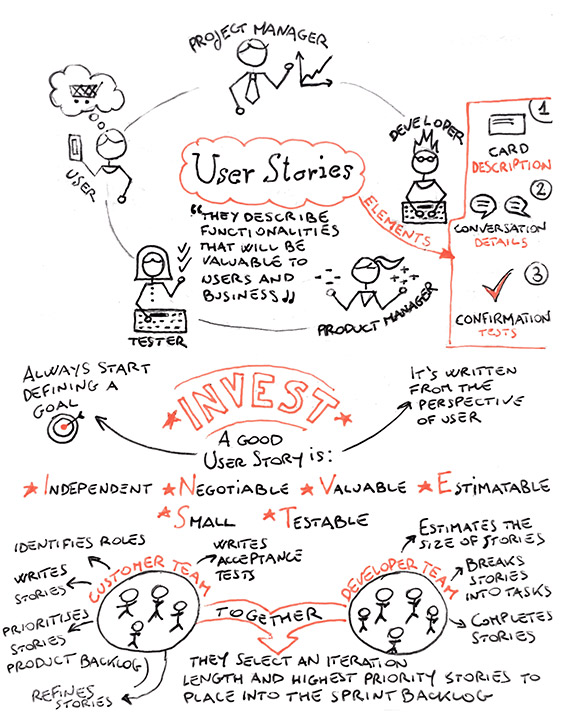 PROJECT MANAGER
USER
DEVELOPER
User Stories
"THEY DESCRIBE
FUNCTIONALITIES
THAT WILL BE
VALUABLE TO
USERS AND
BUSINESS"
TESTER
PRODUCT MANAGER
ELEMENTS
1
CARD
DESCRIPTION
2
CONVERSATION
DETAILS
3
CONFIRMATION
TESTS
ALWAYS START
DEFINING A
GOAL
INVEST
IT'S WRITTEN
FROM THE
PERSPECTIVE
OF USER
A GOOD
USER STORY IS:
INDEPENDENT NEGOTIABLE VALUABLE ESTIMATABLE
SMALL TESTABLE
CUSTOMER TEAM
IDENTIFIES ROLES
WRITES
STORIES
PRIORITISES
STORIES
PRODUCT BACKLOG
REFINES
STORIES
WRITES
ACCEPTANCE
TESTS
TOGETHER
DEVELOPER TEAM
ESTIMATES THE
SIZE OF STORIES
BREAKS
STORIES
INTO TASKS
COMPLETES
STORIES
THEY SELECT AN ITERATION
LENGTH AND HIGHEST PRIORITY STORIES TO
PLACE INTO THE SPRINT BACKLOG